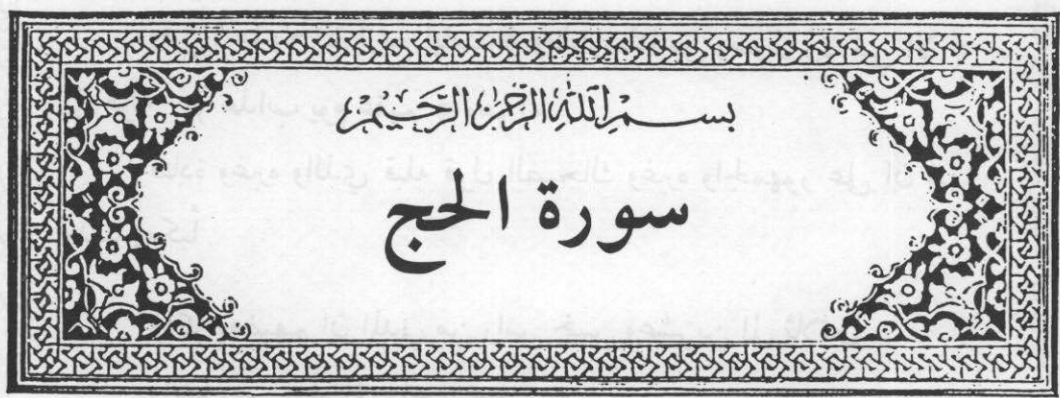 بسم الله الرحمن الرحيم
سورة الحج